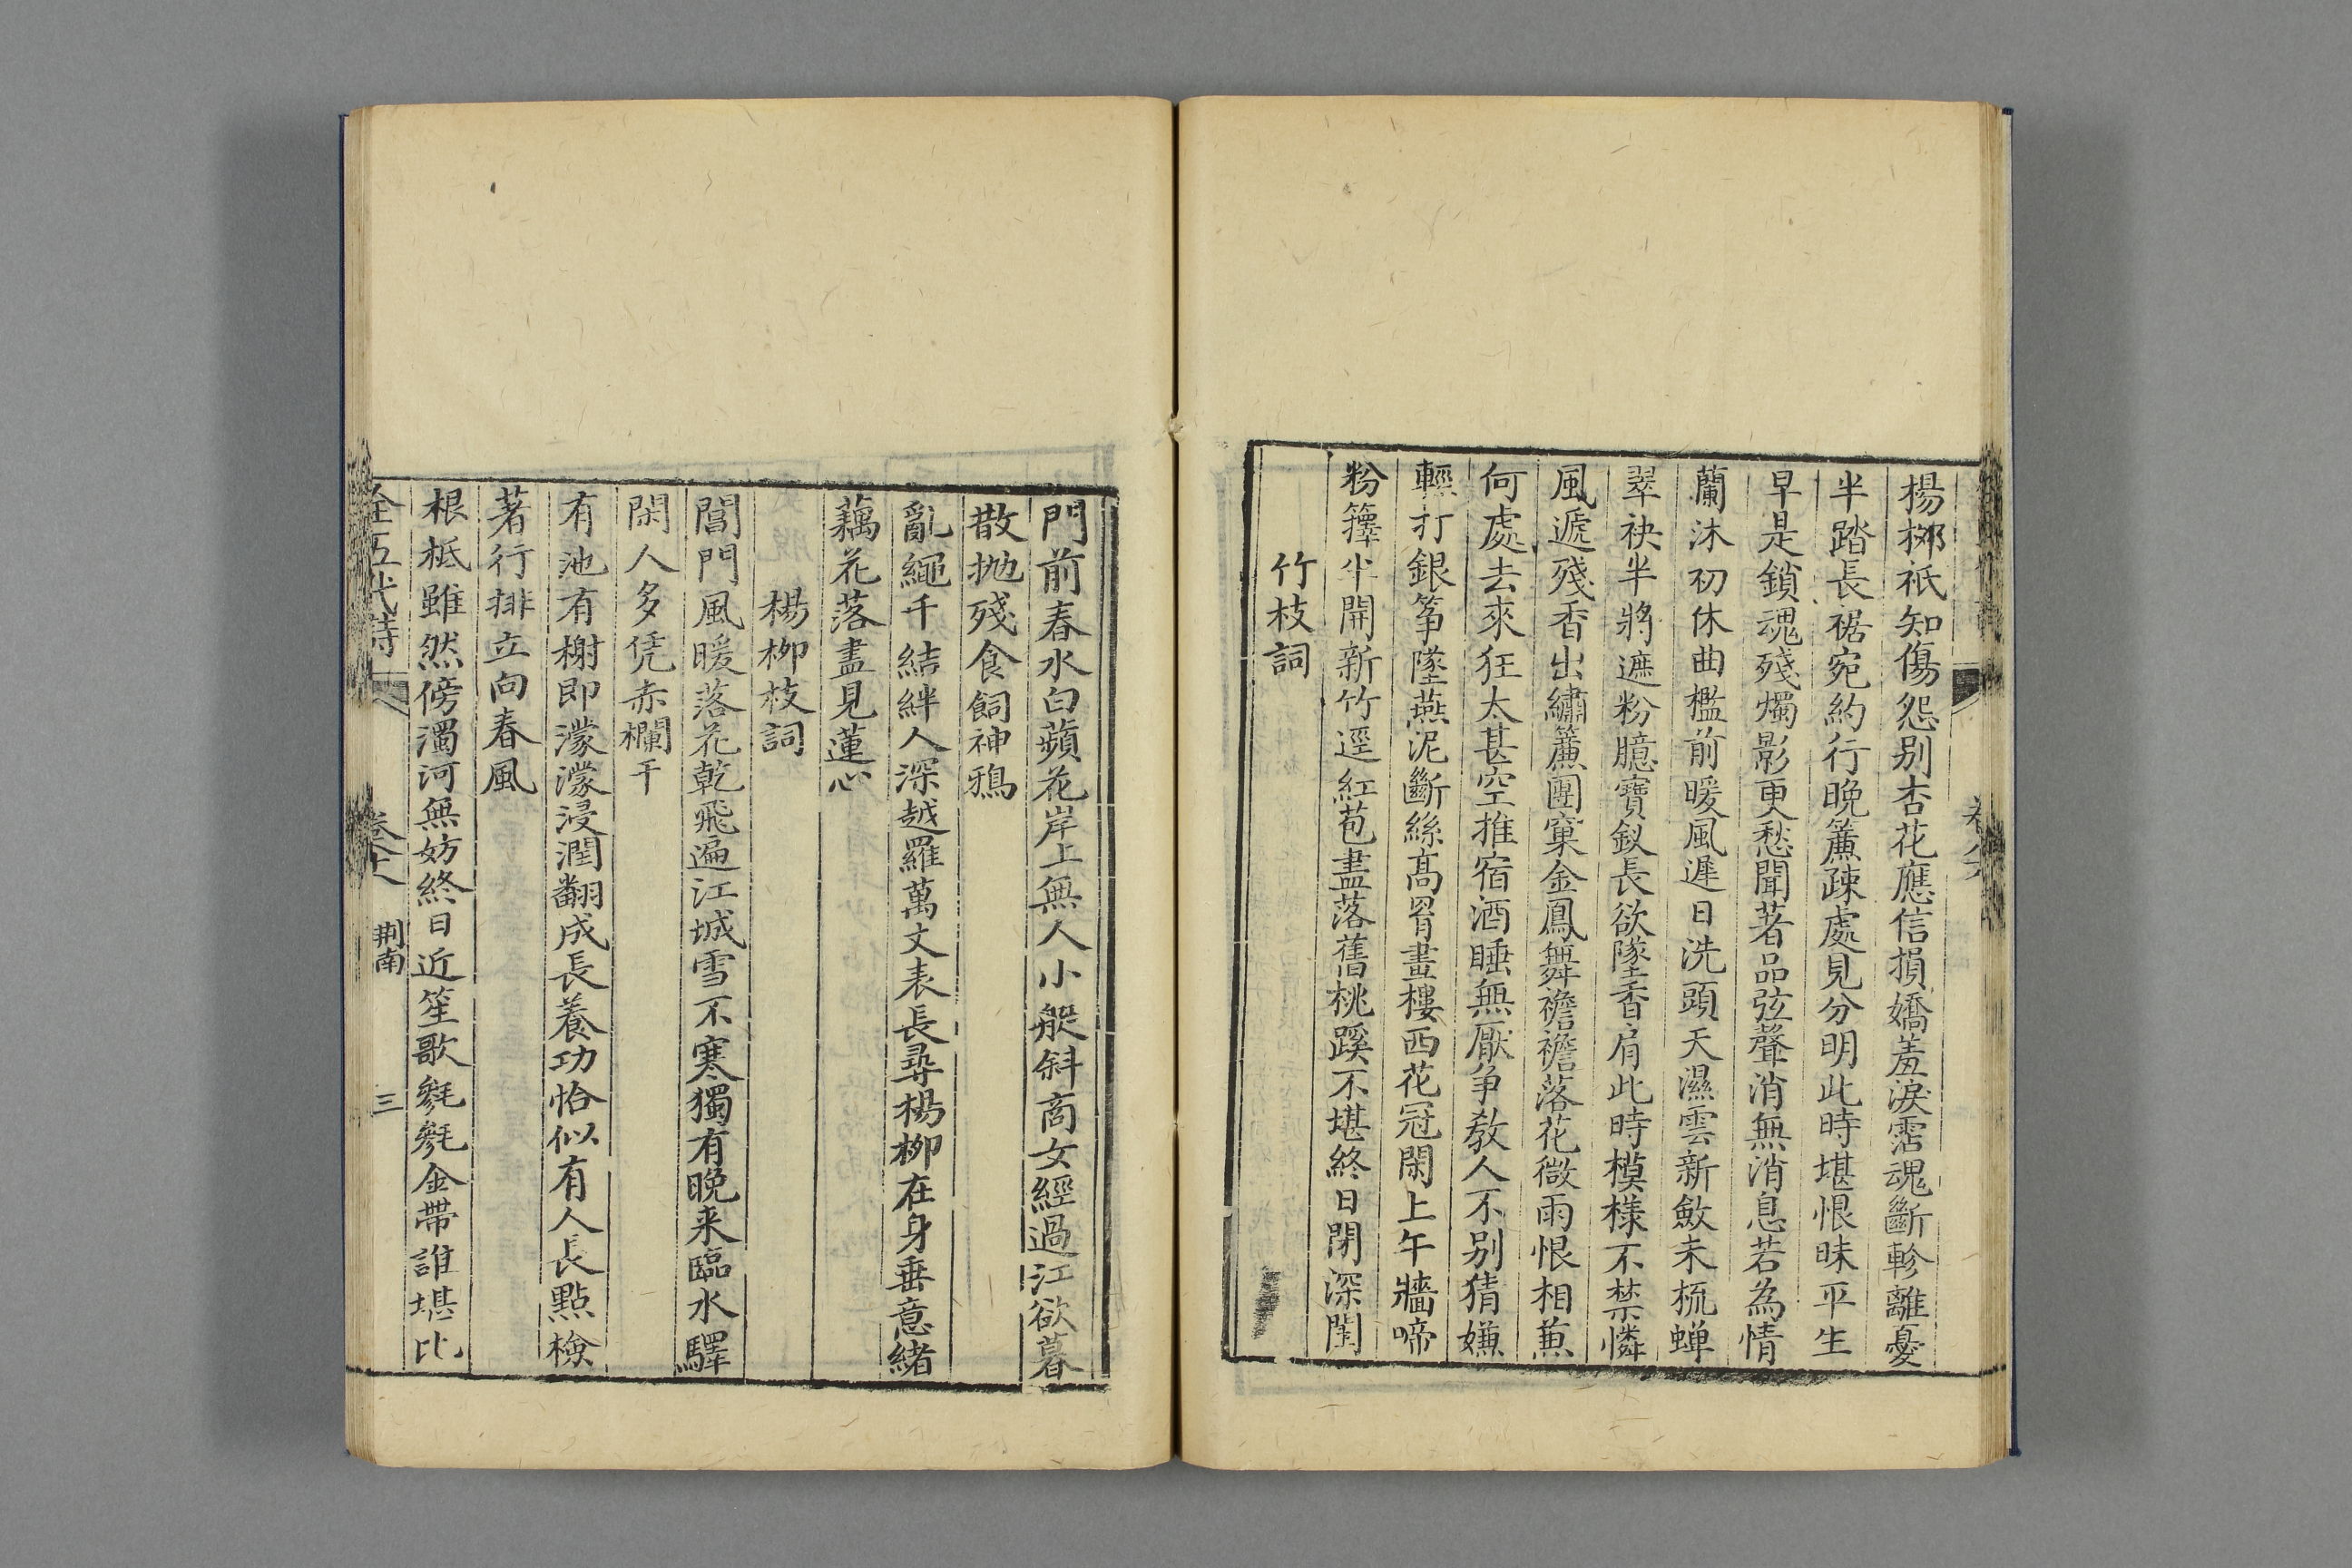 楊桞祇知傷怨别杏花應信損嬌羞淚霑魂斷軫離憂
半踏長裾宛約行晩簾疎處見分明此時堪恨昧平生
早是鎖魂殘燭影更愁聞著品弦聲消無消息若為情
蘭沐初休曲檻前暖風遲日洗頭天濕雲新斂未梳蟬
翠袂半將遮粉臆寶釵長欲墜香肩此時模様不禁憐
風遞殘香出繡簾團窠金鳳舞襜襜落花微雨恨相蒹
何處去來狂太甚空推宿酒睡無厭争教人不别猜嫌
輕打銀筝墜燕泥斷絲髙罥畫樓西花冠閑上午牆啼
粉籜半開新竹逕紅苞盡落舊桃蹊不堪終日閉深閨
竹枝詞
門前春水白蘋花岸上無人小艇斜商女經過江欲暮
散抛殘食飼神鴉
亂繩千結絆人深越羅萬文表長尋楊柳在身垂意緒
藕花落盡見蓮心
楊柳枝詞
閶門風暖落花乾飛遍江城雪不寒獨有晚来臨水驛
閑人多凭赤欄干
有池有榭即濛濛浸潤翻成長養功恰似有人長點檢
著行排立向春風
根柢雖然傍濁河無妨終日近笙歌毿毿金帶誰堪比
全五代詩 荆南 三